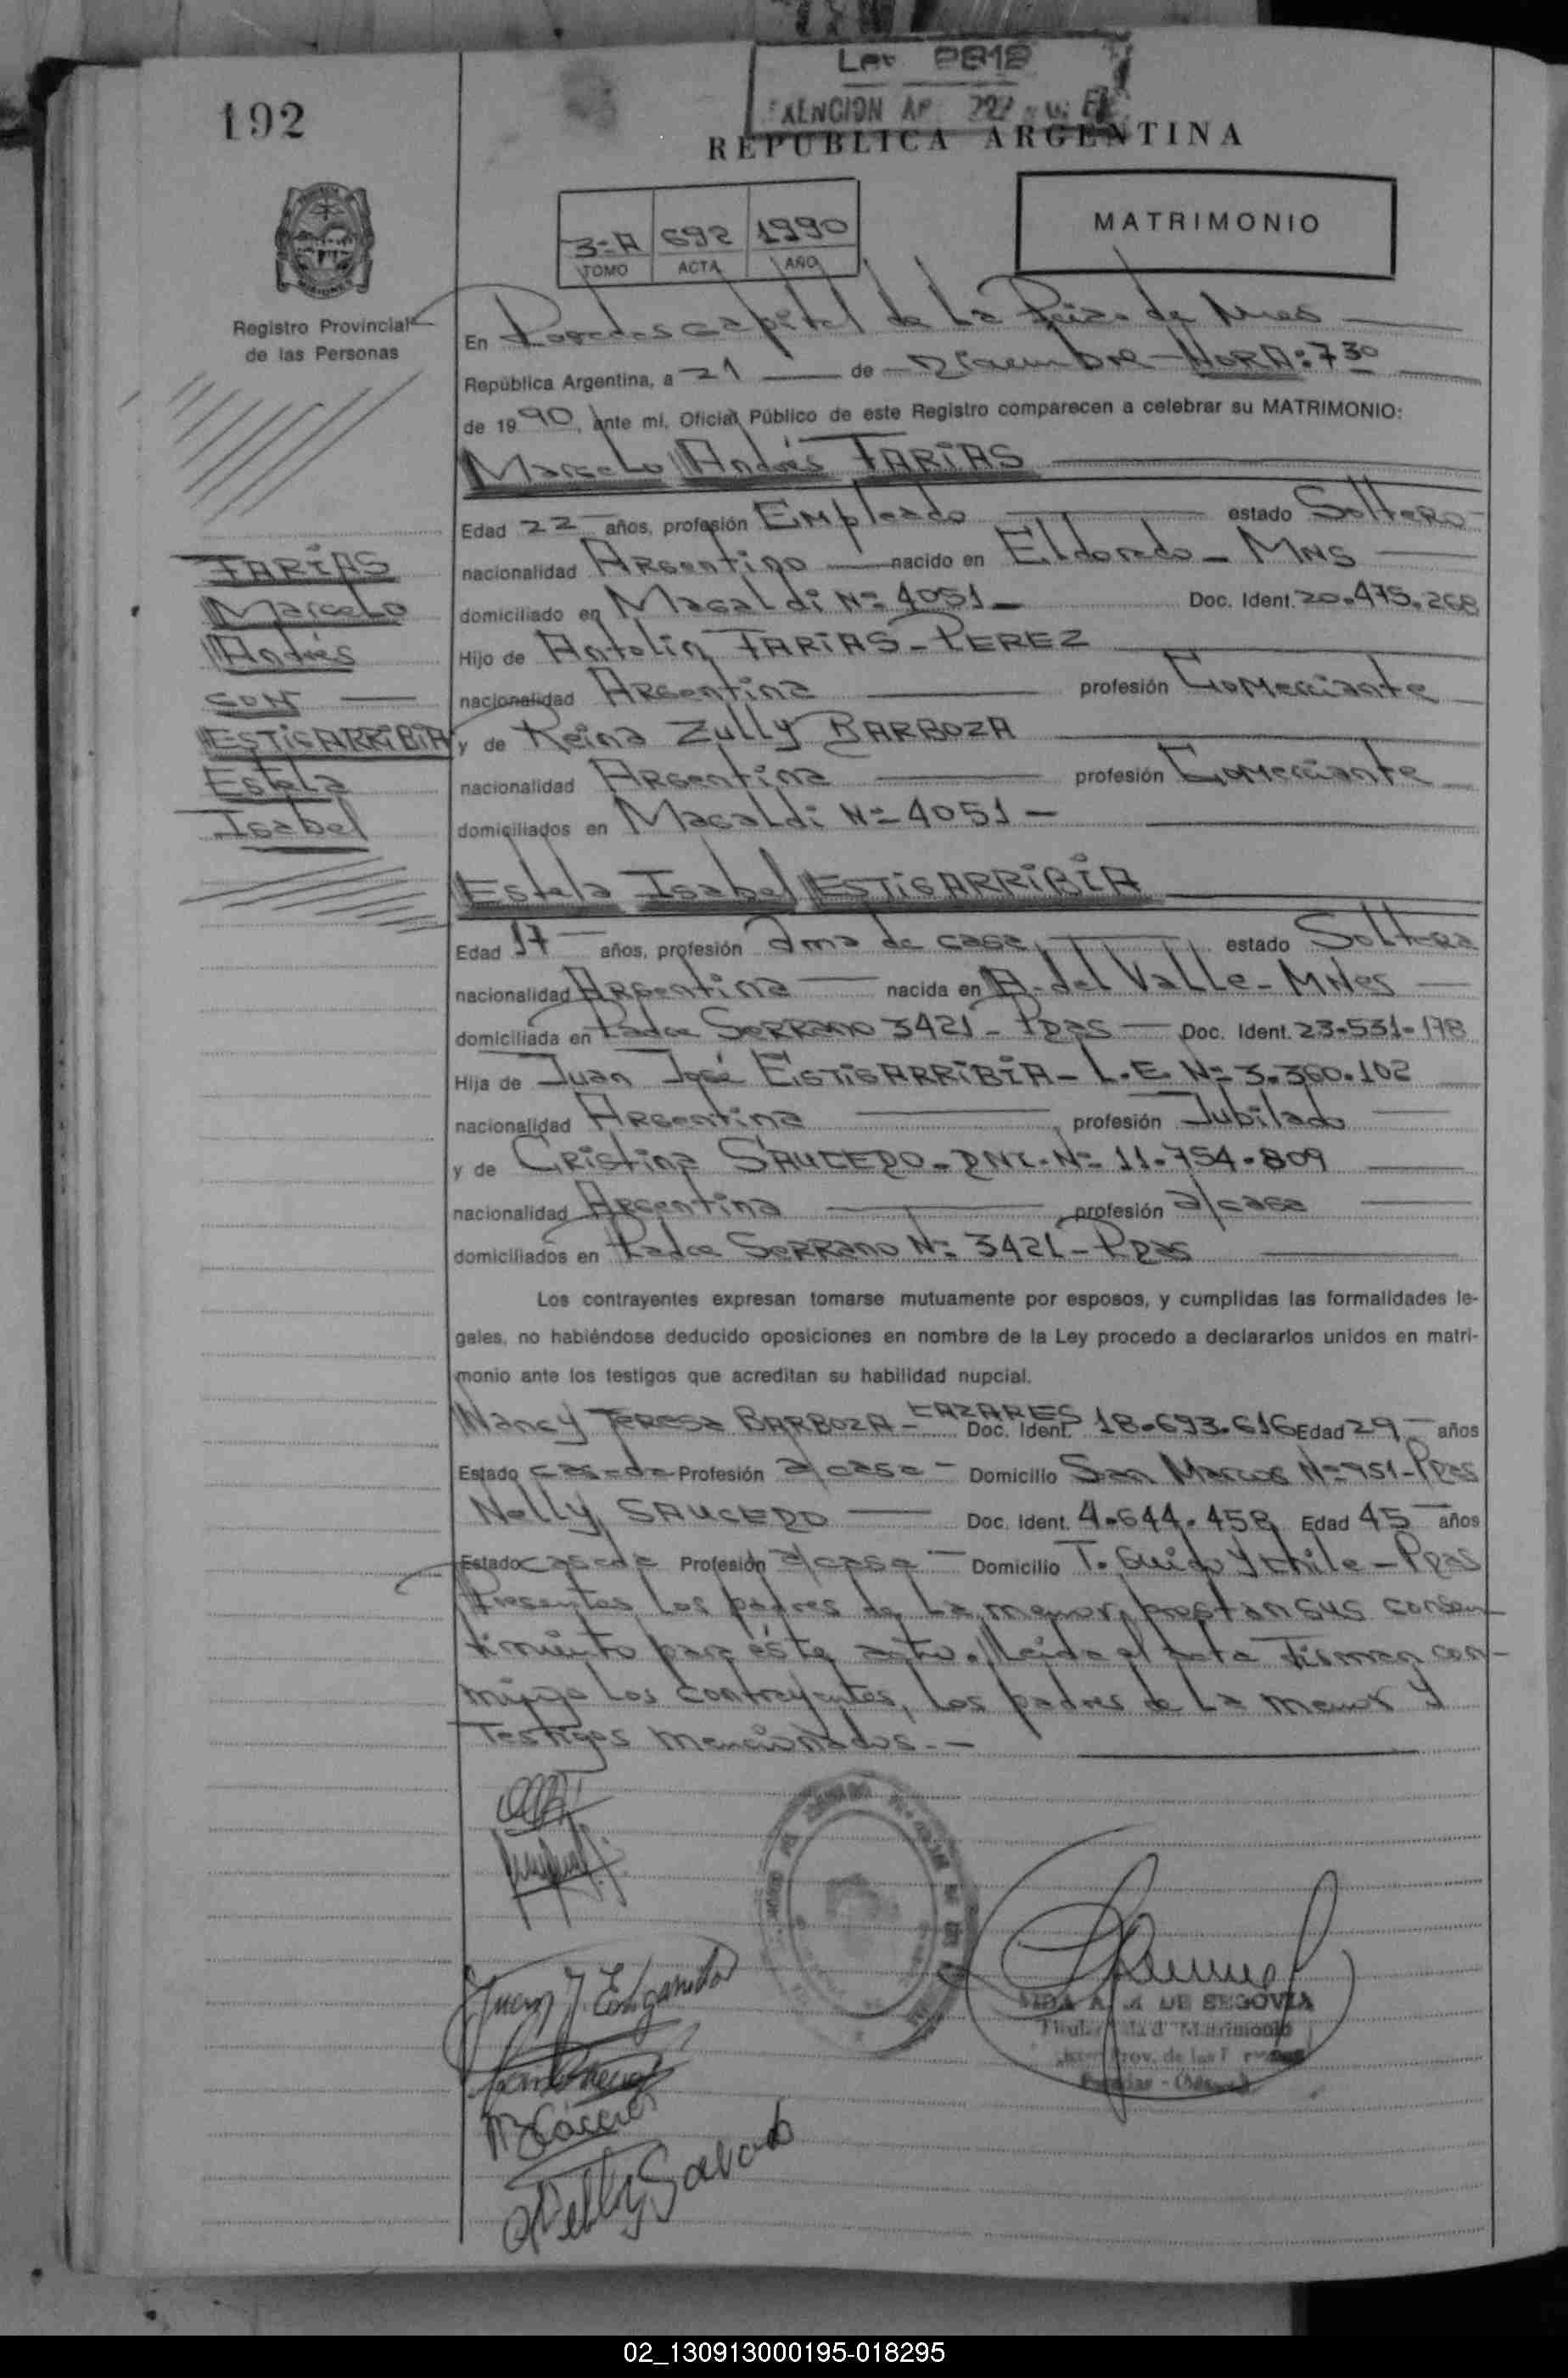 192
Ley 2818
EXENCION AR
REPUBLICA ARGENTINA
3=A 692 1990
TOMO ACTA AÑO
MATRIMONIO
Registro Provincial
de las Personas
En Posadas capital de La Pcia. de Mnes
República Argentina, a 21 de Diciembre - HORA: 7 30
de 1990, ante mi, Oficial Público de este Registro comparecen a celebrar su MATRIMONIO:
Marcelo Andrés FARIAS
Edad 22 años, profesión Empleado estado Soltero
nacionalidad Argentino nacido en Eldorado - MNS
domiciliado en Magaldi Nº 4051 - Doc. Ident. 20.475.268
Hijo de Antolin FARIAS - PEREZ
nacionalidad Argentina profesión Comerciante
y de Reina Zully BARBOZA
nacionalidad Argentina profesión Comerciante
domiciliados en Magaldi Nº 4051 -
FARIAS
Marcelo
Andrés
CON
ESTIGARRIBIA
Estela
Isabel
Estela Isabel ESTIGARRIBIA
Edad 17 años, profesión ama de casa estado Soltera
nacionalidad Argentina nacida en A. del Valle - MNes
domiciliada en Padre Serrano 3421 - Ppas Doc. Ident. 23.531.178
Hija de Juan José ESTIGARRIBIA - L.E. Nº 3.360.102
nacionalidad Argentina profesión Jubilado
y de Cristina SAUCEDO - DNI. Nº 11.754.809
nacionalidad Argentina profesión a/casa
domiciliados en Padre Serrano Nº 3421 - Ppas
Los contrayentes expresan tomarse mutuamente por esposos, y cumplidas las formalidades le-
gales, no habiéndose deducido oposiciones en nombre de la Ley procedo a declararlos unidos en matri-
monio ante los testigos que acreditan su habilidad nupcial.
Nancy Teresa BARBOZA - CAZARES Doc. Ident. 18.693.616 Edad 29 años
Estado casada Profesión a/casa - Domicilio San Marcos Nº 951 - Ppas
Nelly SAUCEDO Doc. Ident. 4.644.458 Edad 45 años
Estado casada Profesión a/casa - Domicilio T. Guido y Chile - Ppas
Presentes los padres de La menor, prestan sus consen-
timiento para éste acto. Leida el acta Firman con-
migo Los contrayentes, Los padres de La menor y
Testigos mencionados. -
Juan J. Estigarribia
Nelly Saucedo
A. M. DE SEGOVIA
Titular Matrimonio
Prov. de las
02_130913000195-018295